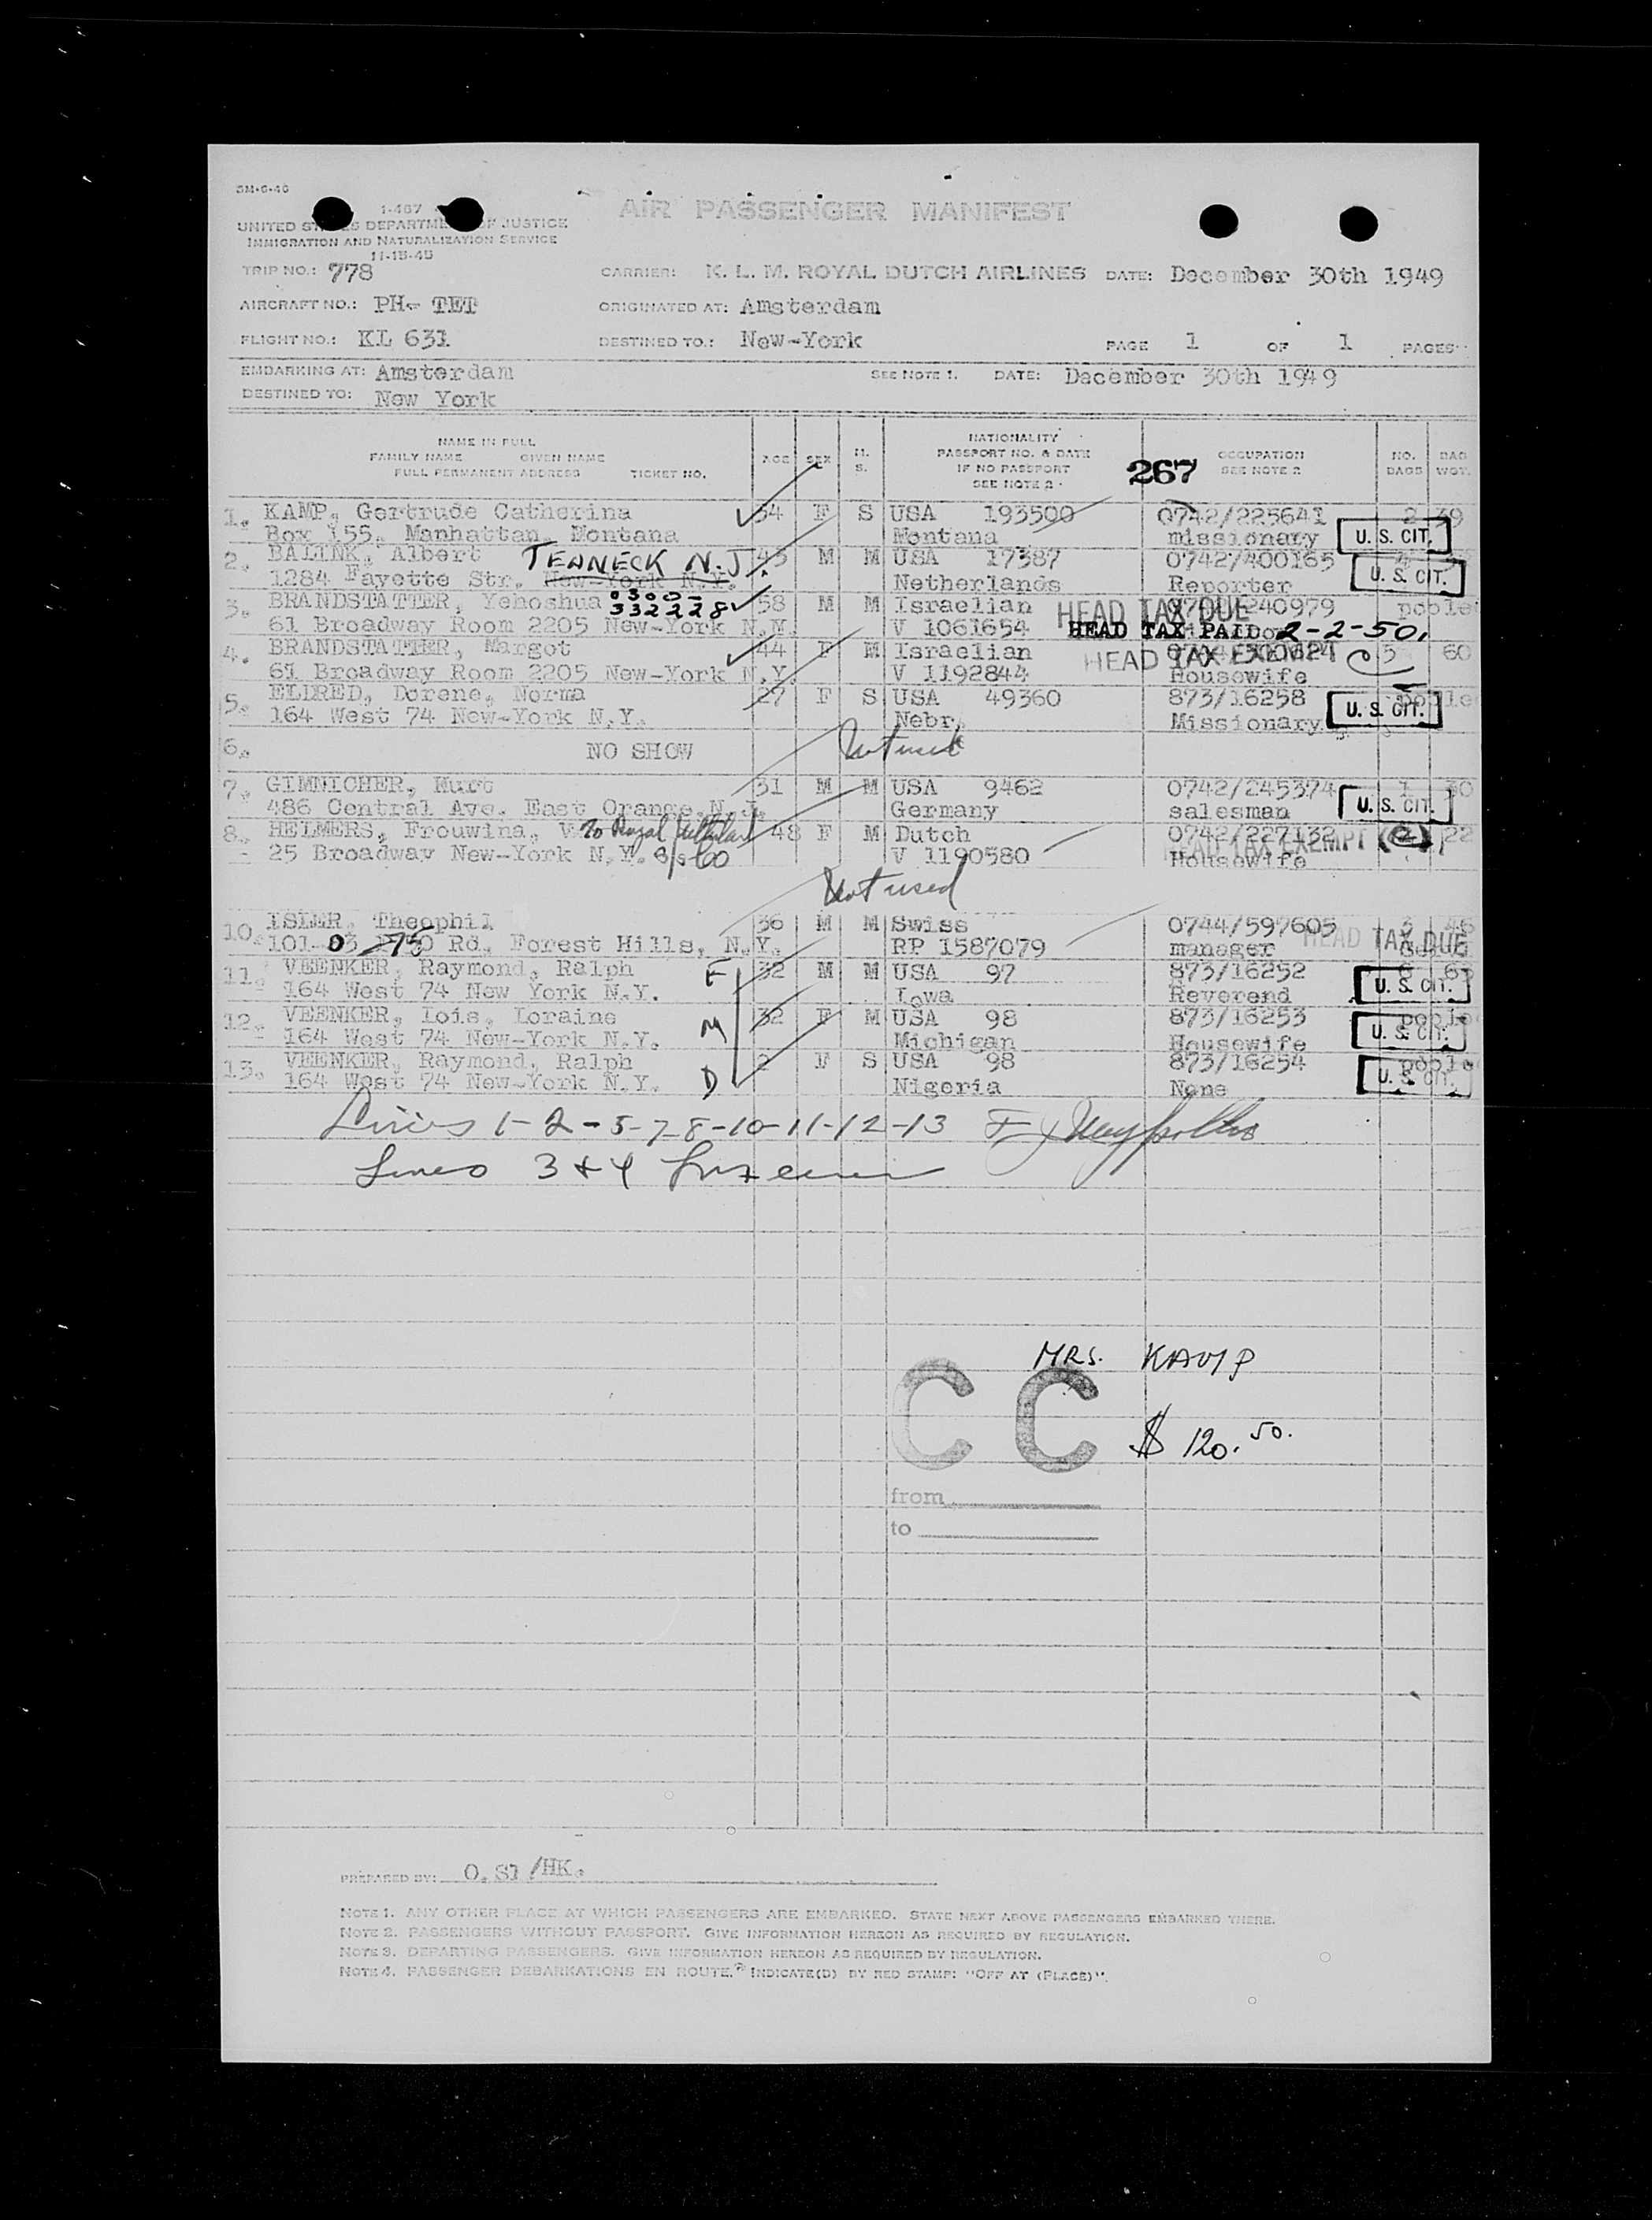 5M-6-46
1-467
UNITED STATES DEPARTMENT OF JUSTICE
IMMIGRATION AND NATURALIZATION SERVICE
11-15-45
AIR PASSENGER MANIFEST
TRIP NO.: 778 CARRIER: K. L. M. ROYAL DUTCH AIRLINES DATE: December 30th 1949
AIRCRAFT NO.: PH- TET ORIGINATED AT: Amsterdam
FLIGHT NO.: KL 631 DESTINED TO.: New-York PAGE 1 OF 1 PAGES
EMBARKING AT: Amsterdam SEE NOTE 1. DATE: December 30th 1949
DESTINED TO: New York
NAME IN FULL
FAMILY NAME GIVEN NAME
FULL PERMANENT ADDRESS TICKET NO.
AGE SEX M. S.
NATIONALITY
PASSPORT NO. & DATE
IF NO PASSPORT
SEE NOTE 2
267
OCCUPATION
SEE NOTE 2
NO. BAGS
BAG WGT.
1. KAMP, Gertrude Catherina 34 F S USA 193500 0742/225641 2 39
Box 155, Manhattan, Montana Montana missionary U. S. CIT.
2. BALINK, Albert TEANECK N.J. 45 M M USA 17387 0742/400165
1284 Fayette Str. New-York N.Y. Netherlands Reporter U. S. CIT.
3. BRANDSTATTER, Yehoshua 0300- 332228 58 M M Israelian HEAD TAX DUE 240979 poole
61 Broadway Room 2205 New-York N.Y. V 1061654 HEAD TAX PAID 2-2-50.
4. BRANDSTATTER, Margot 44 F M Israelian HEAD TAX EXEMPT 5 60
61 Broadway Room 2205 New-York N.Y. V 1192844 Housewife
5. ELDRED, Dorene, Norma 27 F S USA 49360 873/16258
164 West 74 New-York N.Y. Nebr. Missionary U. S. CIT.
6. NO SHOW Not used
7. GIMNICHER, Kurt 31 M M USA 9462 0742/245374 1 30
486 Central Ave. East Orange, N.J. Germany salesman U. S. CIT.
8. HELMERS, Frouwina, V 48 F M Dutch 0742/227132 22
25 Broadway New-York N.Y. V 1190580 HEAD TAX EXEMPT Housewife
Not used
10. ISLER, Theophil 36 M M Swiss 0744/597605 3 46
101-03 75 Rd. Forest Hills, N.Y. RP 1587079 manager HEAD TAX DUE
11. VEENKER, Raymond, Ralph F 32 M M USA 97 873/16252
164 West 74 New York N.Y. Iowa Reverend U. S. CIT.
12. VEENKER, Lois, Loraine M 32 F M USA 98 873/16253 poole
164 West 74 New-York N.Y. Michigan Housewife U. S. CIT.
13. VEENKER, Raymond, Ralph D 2 F S USA 98 873/16254 poole
164 West 74 New-York N.Y. Nigeria None U. S. CIT.
Lines 1-2-5-7-8-10-11-12-13
Lines 3 + 4
MRS. KAMP
CC $ 120.50.
from
to
PREPARED BY: O.SI/HK.
NOTE 1. ANY OTHER PLACE AT WHICH PASSENGERS ARE EMBARKED. STATE NEXT ABOVE PASSENGERS EMBARKED THERE.
NOTE 2. PASSENGERS WITHOUT PASSPORT. GIVE INFORMATION HEREON AS REQUIRED BY REGULATION.
NOTE 3. DEPARTING PASSENGERS. GIVE INFORMATION HEREON AS REQUIRED BY REGULATION.
NOTE 4. PASSENGER DEBARKATIONS EN ROUTE. INDICATE(D) BY RED STAMP: "OFF AT (PLACE)".